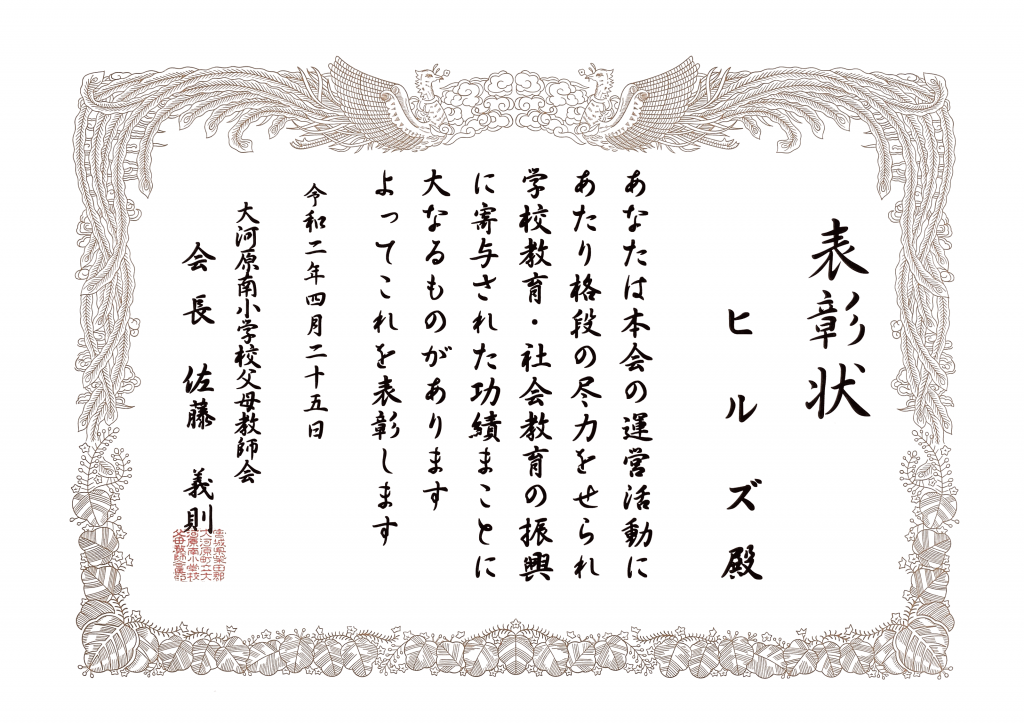 表彰状
ヒルズ殿
あなたは本会の運営活動に
あたり格段の尽力をせられ
学校教育・社会教育の振興
に寄与された功績まことに
大なるものがあります
よってこれを表彰します
令和二年四月二十五日
大河原南小学校父母教師会
会長 佐藤 義則
宮城県柴田郡
大河原町立大
河原南小学校
父母教師会